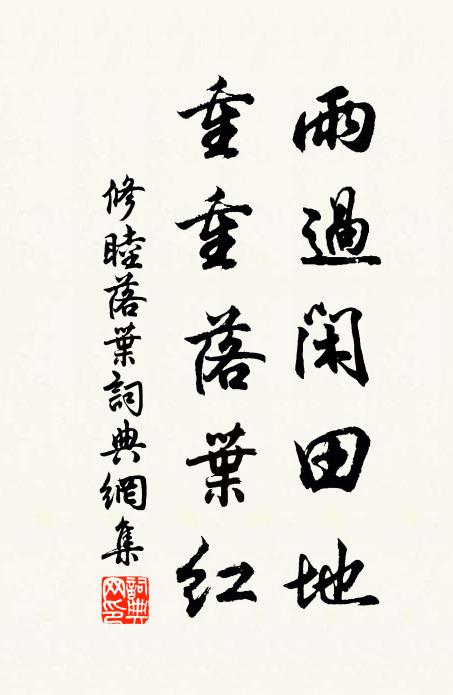 雨過閑田地
重重落葉紅
修睦落葉詞典網集
詞典网印